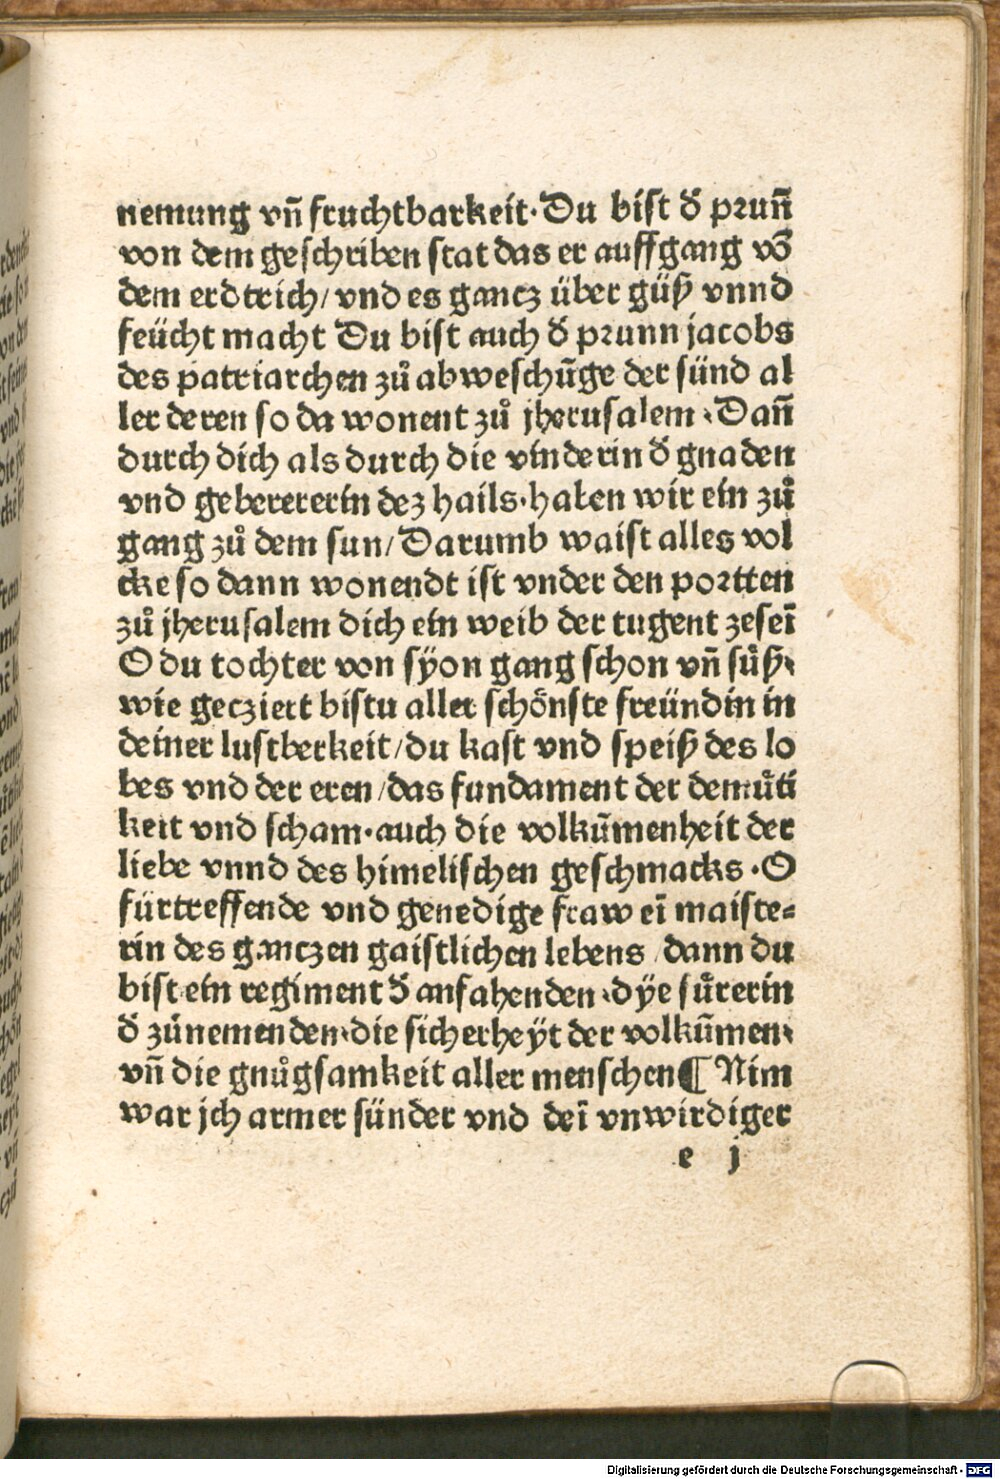 nemung vn̄ fruchtbarkeit· Du bist d̕ prunn̄
von dem geschriben stat das er auffgang vō
dem erdtrich/ vnd es gancz über güß vnnd
feücht macht Du bist auch d̕ prunn jacobs
des patriarchen zů abweschūge der sünd al
ler deren so da wonent zů jherusalem · Dan̄
durch dich als durch die vinderin d̕ gnaden
vnd gebererin dez hails· haben wir ein zů
gang zů dem sun/ Darumb waist alles vol
cke so dann wonendt ist vnder den portten
zů jherusalem dich ein weib der tugent zeseī
O du tochter von sÿon gang schon vn̄ sůß·
wie gecziert bistu aller schönste freündin in
deiner lustberkeit/ du kast vnd speiß des lo
bes vnd der eren/ das fundament der demůti
keit vnd scham· auch die volkūmenheit der
liebe vnnd des himelischen geschmacks · O
fürtreffende vnd genedige fraw eī maiste=
rin des ganczen gaistlichen lebens/ dann du
bist ein regiment d̕ anfahenden· dÿe fůrerin
d̕ zůnemenden· die sicherheÿt der volkūmen·
vn̄ die gnůgsamkeit aller menschen ¶ Nim
war jch armer sünder vnd deī vnwirdiger
e j
Digitalisierung gefördert durch die Deutsche Forschungsgemeinschaft - DFG